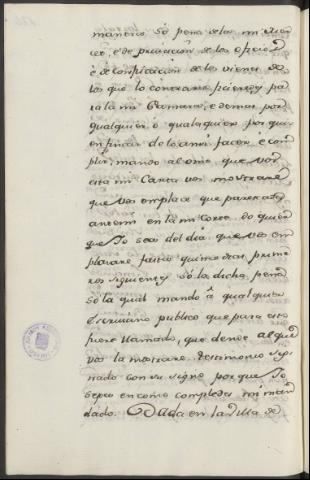 manera só pena de la mi mer
ced, e de privacion de los oficios
é de confiscacion de los vienes de
los que lo contrario ficieren pa
ra la mi Camara, e demas por
qualquier ó qualquier por quien
fincar de lo ansi facer, é con
plir, mando al ome, que vos
esta mi Carta vos mostrare
que vos emplace que parezcades
ante mi en la mi corte do quier
que Yo sea del dia, que vos em
plazare fasta quince dias prime
ros siguientes só la dicha pena
só la qual mando á qualquier
Escrivano publico que para esto
fuere llamado, que dende al que
vos la mostrare testimonio sig
nado con su signo porque Yo
sepa en como complides mi man
dado. Dada en la Villa de